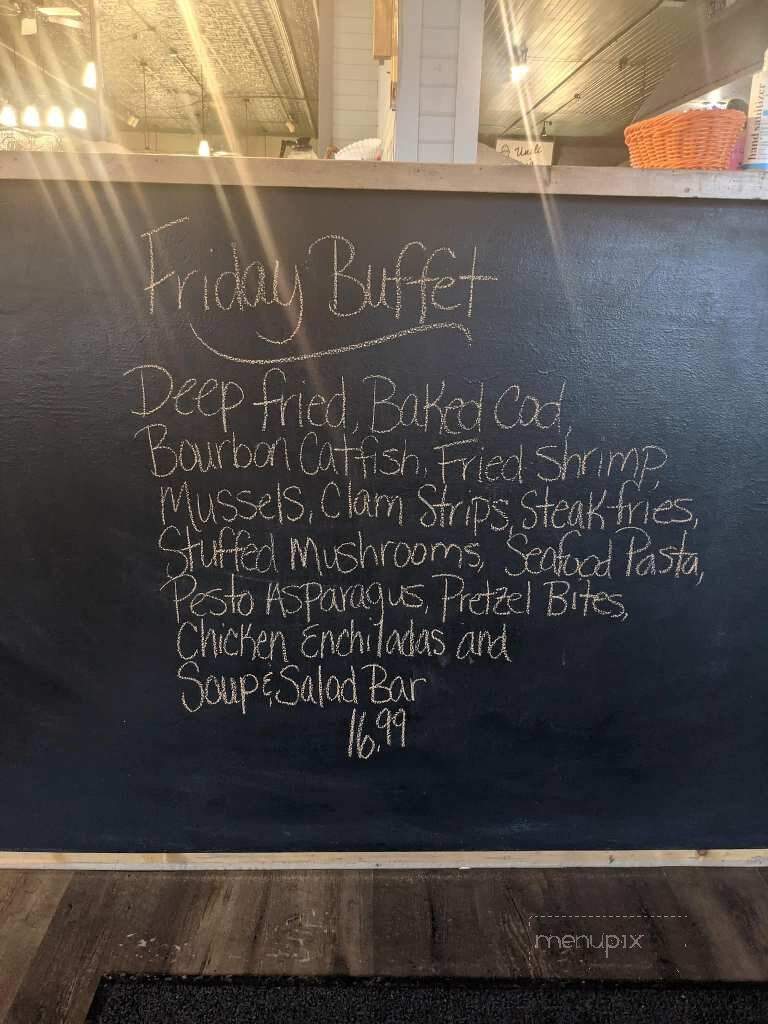 Uncle
hand sanitizer
Friday Buffet
Deep fried, Baked Cod,
Bourbon Catfish, Fried Shrimp,
Mussels, Clam Strips, Steak fries,
Stuffed Mushrooms, Seafood Pasta,
Pesto Asparagus, Pretzel Bites,
Chicken Enchiladas and
Soup & Salad Bar
16.99
menupix